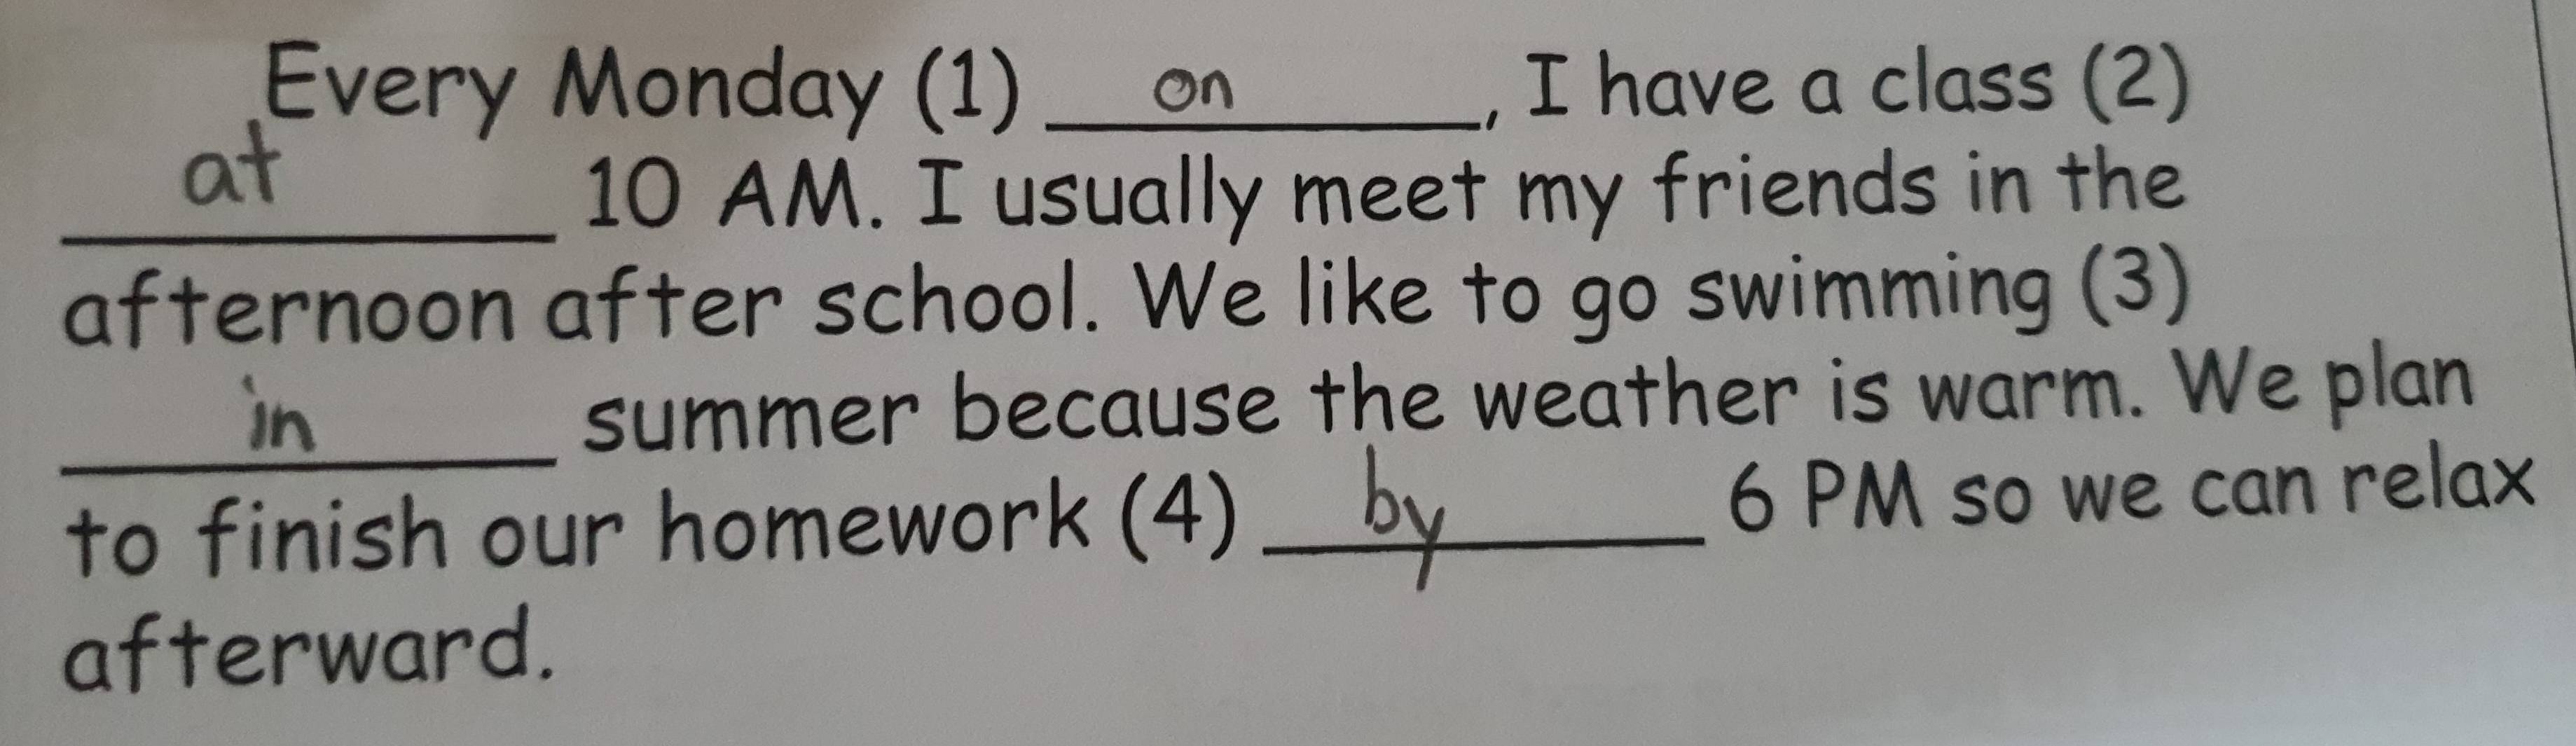 Every Monday (1) on, I have a class (2)
at 10 AM. I usually meet my friends in the
afternoon after school. We like to go swimming (3)
in summer because the weather is warm. We plan
to finish our homework (4) by 6 PM so we can relax
afterward.